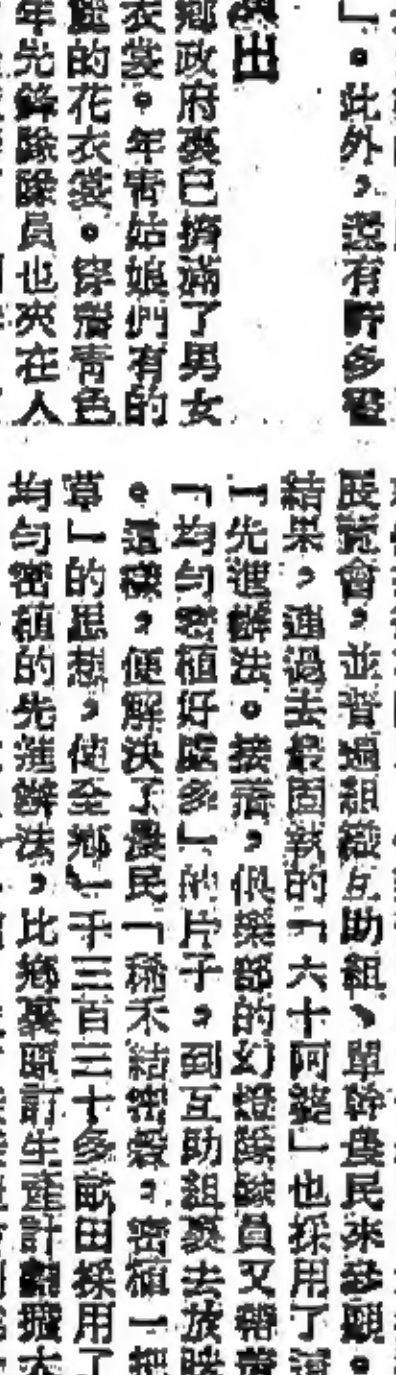 」。此外，還有許多
演出
鄉政府裏已擠滿了男女
衣裳。年青姑娘們有的
的花衣裳。穿着青色
年先鋒隊隊員也夾在人
展覽會，並普遍組織互助組、單幹農民來參觀。
結果，連過去最固執的「六十阿婆」也採用了這
一先進辦法。接着，俱樂部的幻燈隊隊員又帶着
「均勻密植好處多」的片子，到互助組裏去放映
。這樣，便解決了農民「稀禾結密穀，密植一把
草」的思想，使全鄉一千三百三十多畝田採用了
均勻密植的先進辦法，比鄉裏原訂生產計劃擴大